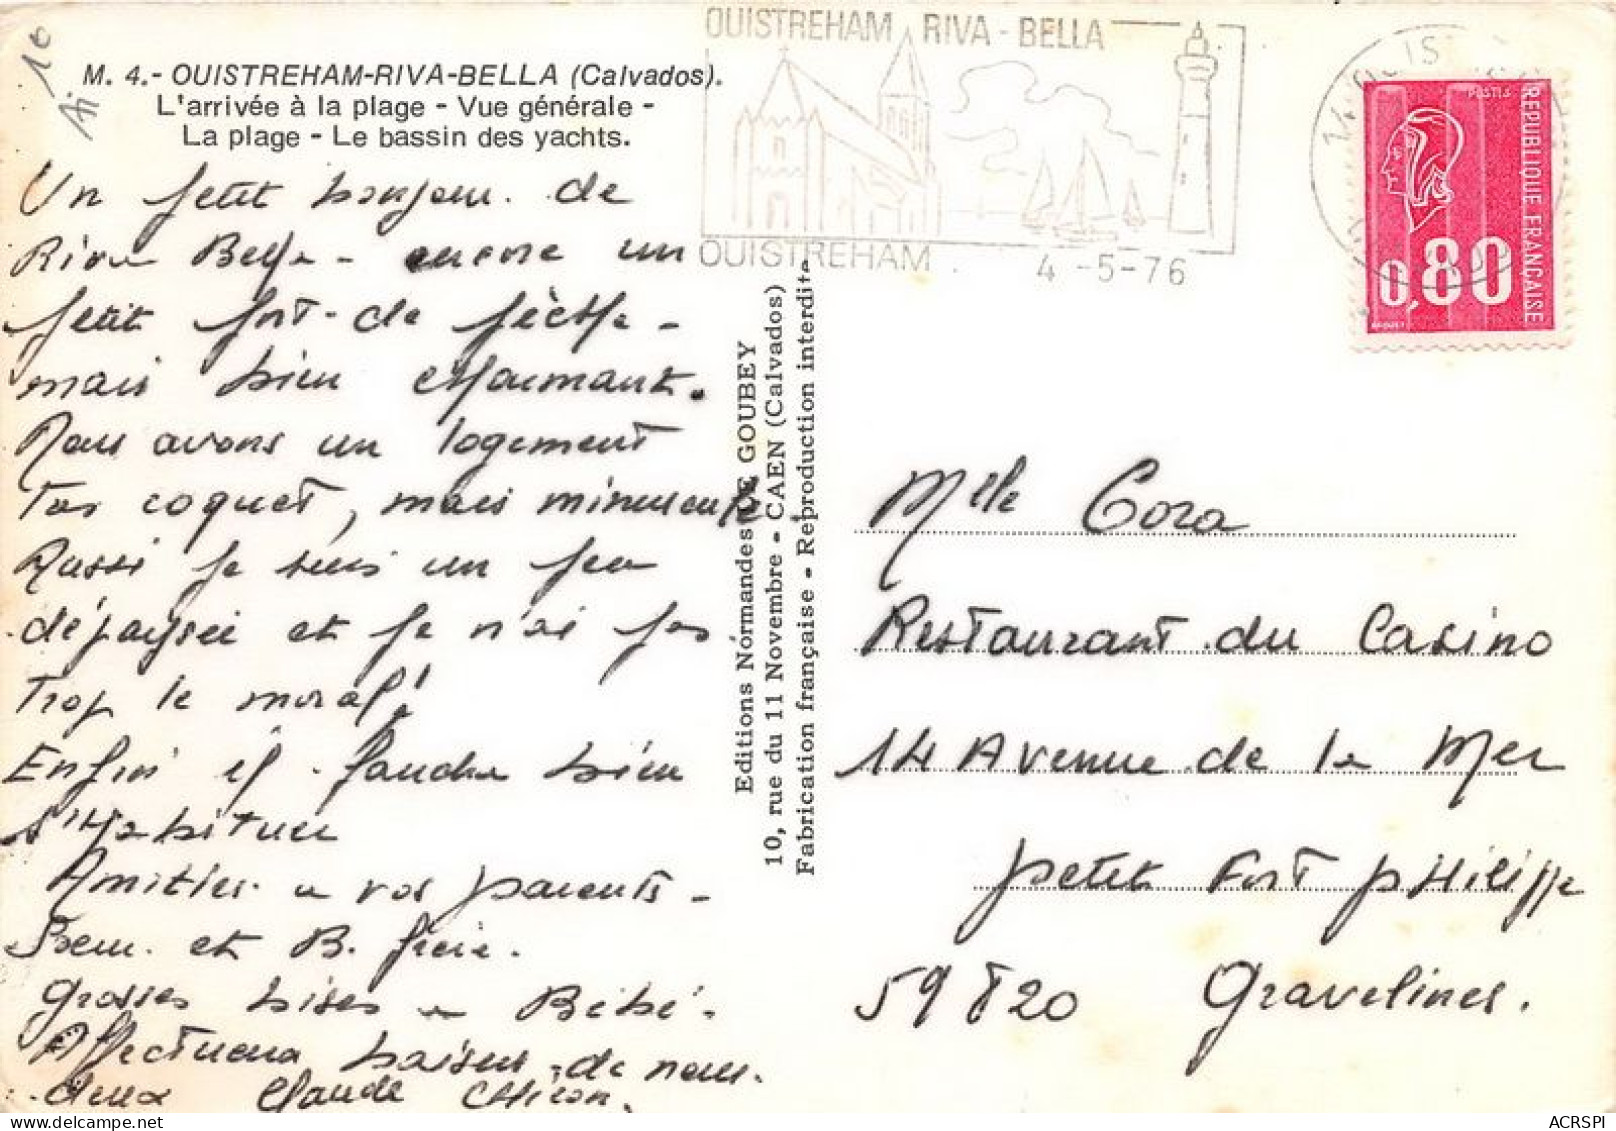 Ai 10
M. 4.- OUISTREHAM-RIVA-BELLA (Calvados).
L'arrivée à la plage - Vue générale -
La plage - Le bassin des yachts.
Un petit bonjour de
Riva Bella - encore un
petit port de pêche -
mais bien charmant.
Nous avons un logement
Tas coquet, mais minuscule
Aussi je suis un peu
dépaysée et je n'ai pas
Trop le moral!
Enfin il faudra bien
s'Habituer
Amitiés a vos parents -
Soeur et B. frère.
Grosses bises a Bébé.
Affectueux baisers de nous
deux Claude
OUISTREHAM RIVA-BELLA
OUISTREHAM
4 -5-76
POSTES
REPUBLIQUE FRANÇAISE
0,80
Editions Normandes LE GOUBEY
10, rue du 11 Novembre - CAEN (Calvados)
Fabrication française - Reproduction interdite
Mlle Cora
Restaurant du Casino
14 Avenue de la Mer
petit Fort pHilippe
59820 Gravelines.
ACRSPI